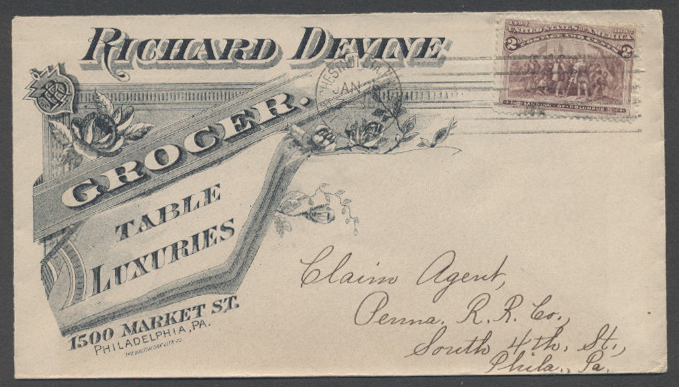 RICHARD DEVINE
GROCER.
TABLE
LUXURIES
1500 MARKET ST.
PHILADELPHIA, PA.
JAN
UNITED STATES OF AMERICA
POSTAGE TWO CENTS
2 2
Claim Agent,
Penna. R. R. Co.,
South 4th. St.,
Phila., Pa.